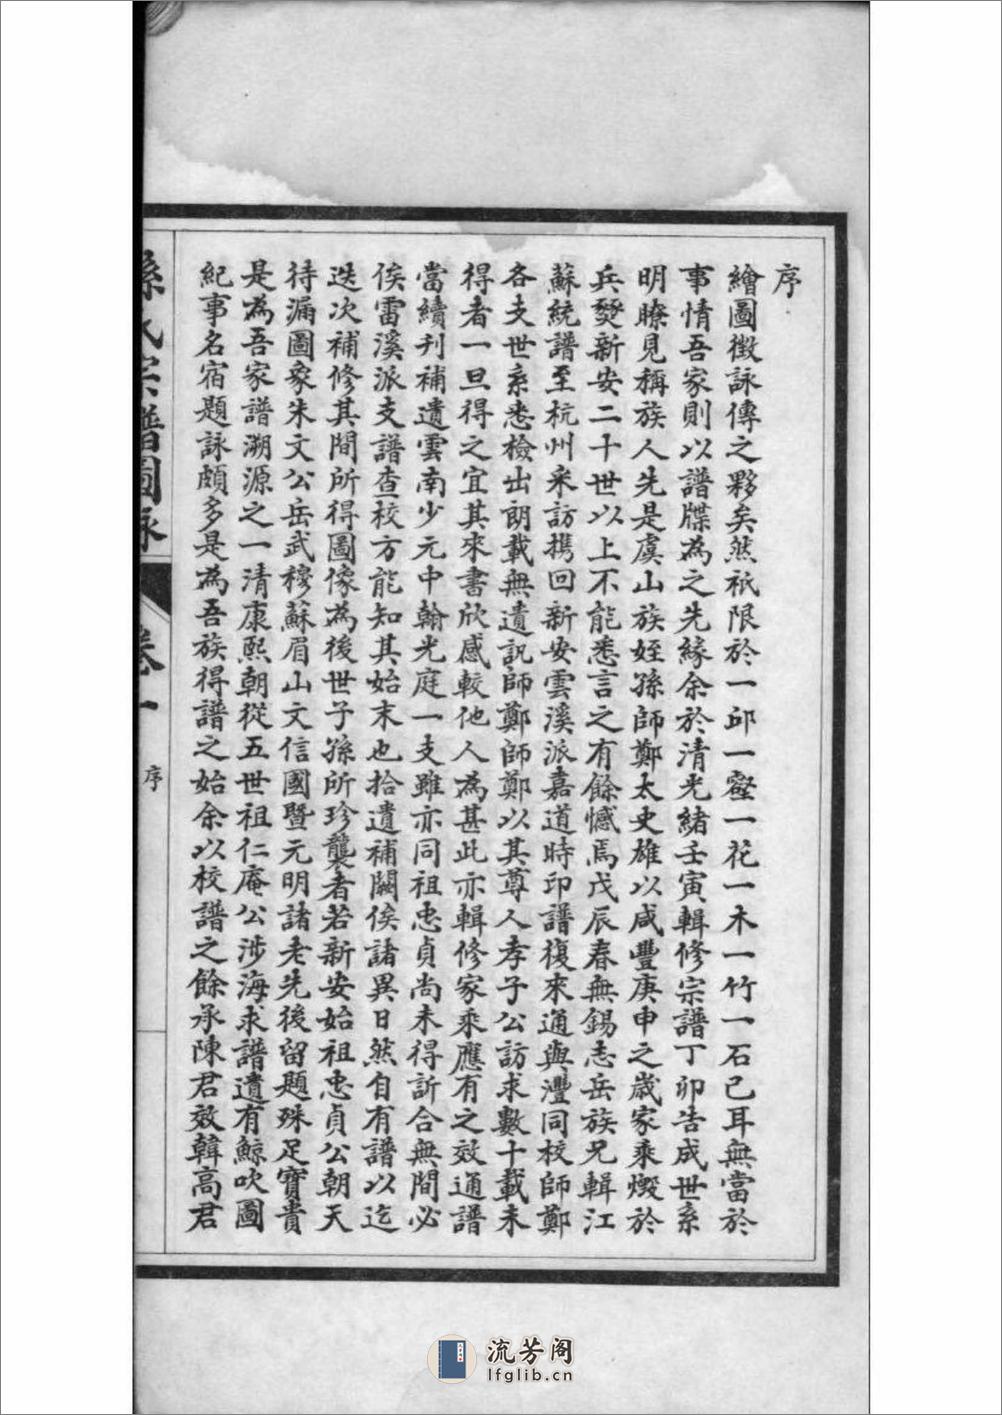 序
繪圖徵詠傳之夥矣然祇限於一邱一壑一花一木一竹一石已耳無當於
事情吾家則以譜牒為之先緣余於清光緒壬寅輯修宗譜丁卯告成世系
明瞭見稱族人先是虞山族姪孫師鄭太史雄以咸豐庚申之歲家乘燬於
兵燹新安二十世以上不能悉言之有餘憾焉戊辰春無錫志岳族兄輯江
蘇統譜至杭州采訪携回新安雲溪派嘉道時印譜復來通與灃同校師鄭
各支世系悉檢出朗載無遺訊師鄭師鄭以其尊人孝子公訪求數十載未
得者一旦得之宜其來書欣感較他人為甚此亦輯修家乘應有之效通譜
當續刊補遺雲南少元中翰光庭一支雖亦同祖忠貞尚未得訢合無間必
俟雷溪派支譜查校方能知其始末也拾遺補闕俟諸異日然自有譜以迄
迭次補修其間所得圖像為後世子孫所珍襲者若新安始祖忠貞公朝天
待漏圖象朱文公岳武穆蘇眉山文信國暨元明諸老先後留題殊足寶貴
是為吾家譜溯源之一清康熙朝從五世祖仁庵公涉海求譜遺有鯨吹圖
紀事名宿題詠頗多是為吾族得譜之始余以校譜之餘承陳君效韓高君
孫氏宗譜圖詠
卷一
序
流芳阁
lfglib.cn